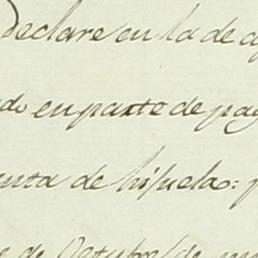 Declare en la de a
do en parte de pag
enta de hijuela: p
de Octubre de